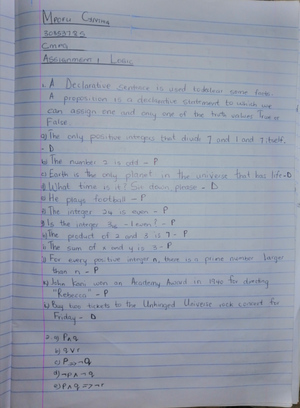 Assignment 1 Logic
1. A Declarative sentence is used to deliver some facts.
A proposition is a declarative statement to which we
can assign one and only one of the truth values True or
False.
a) The only positive integers that divide 7 and 1 and 7 itself.
- D
b) The number 2 is odd - P
c) Earth is the only planet in the universe that has life - D
d) What time is it? Sit down please - D
e) He plays football - P
f) The integer 24 is even - P
g) Is the integer even? - P
h) The product of 2 and 3 is 7 - P
i) The sum of x and y is 3 - P
j) For every positive integer n, there is a prime number larger
than n - P
k) won an Academy Award in 1940 for directing
"Rebecca" - P
l) Buy two tickets to the Unhinged Universe rock concert for
Friday - D
2. a) P ∧ q
b) q ∨ r
d) ¬p ∧ ¬q
e) p ∧ q => ¬r